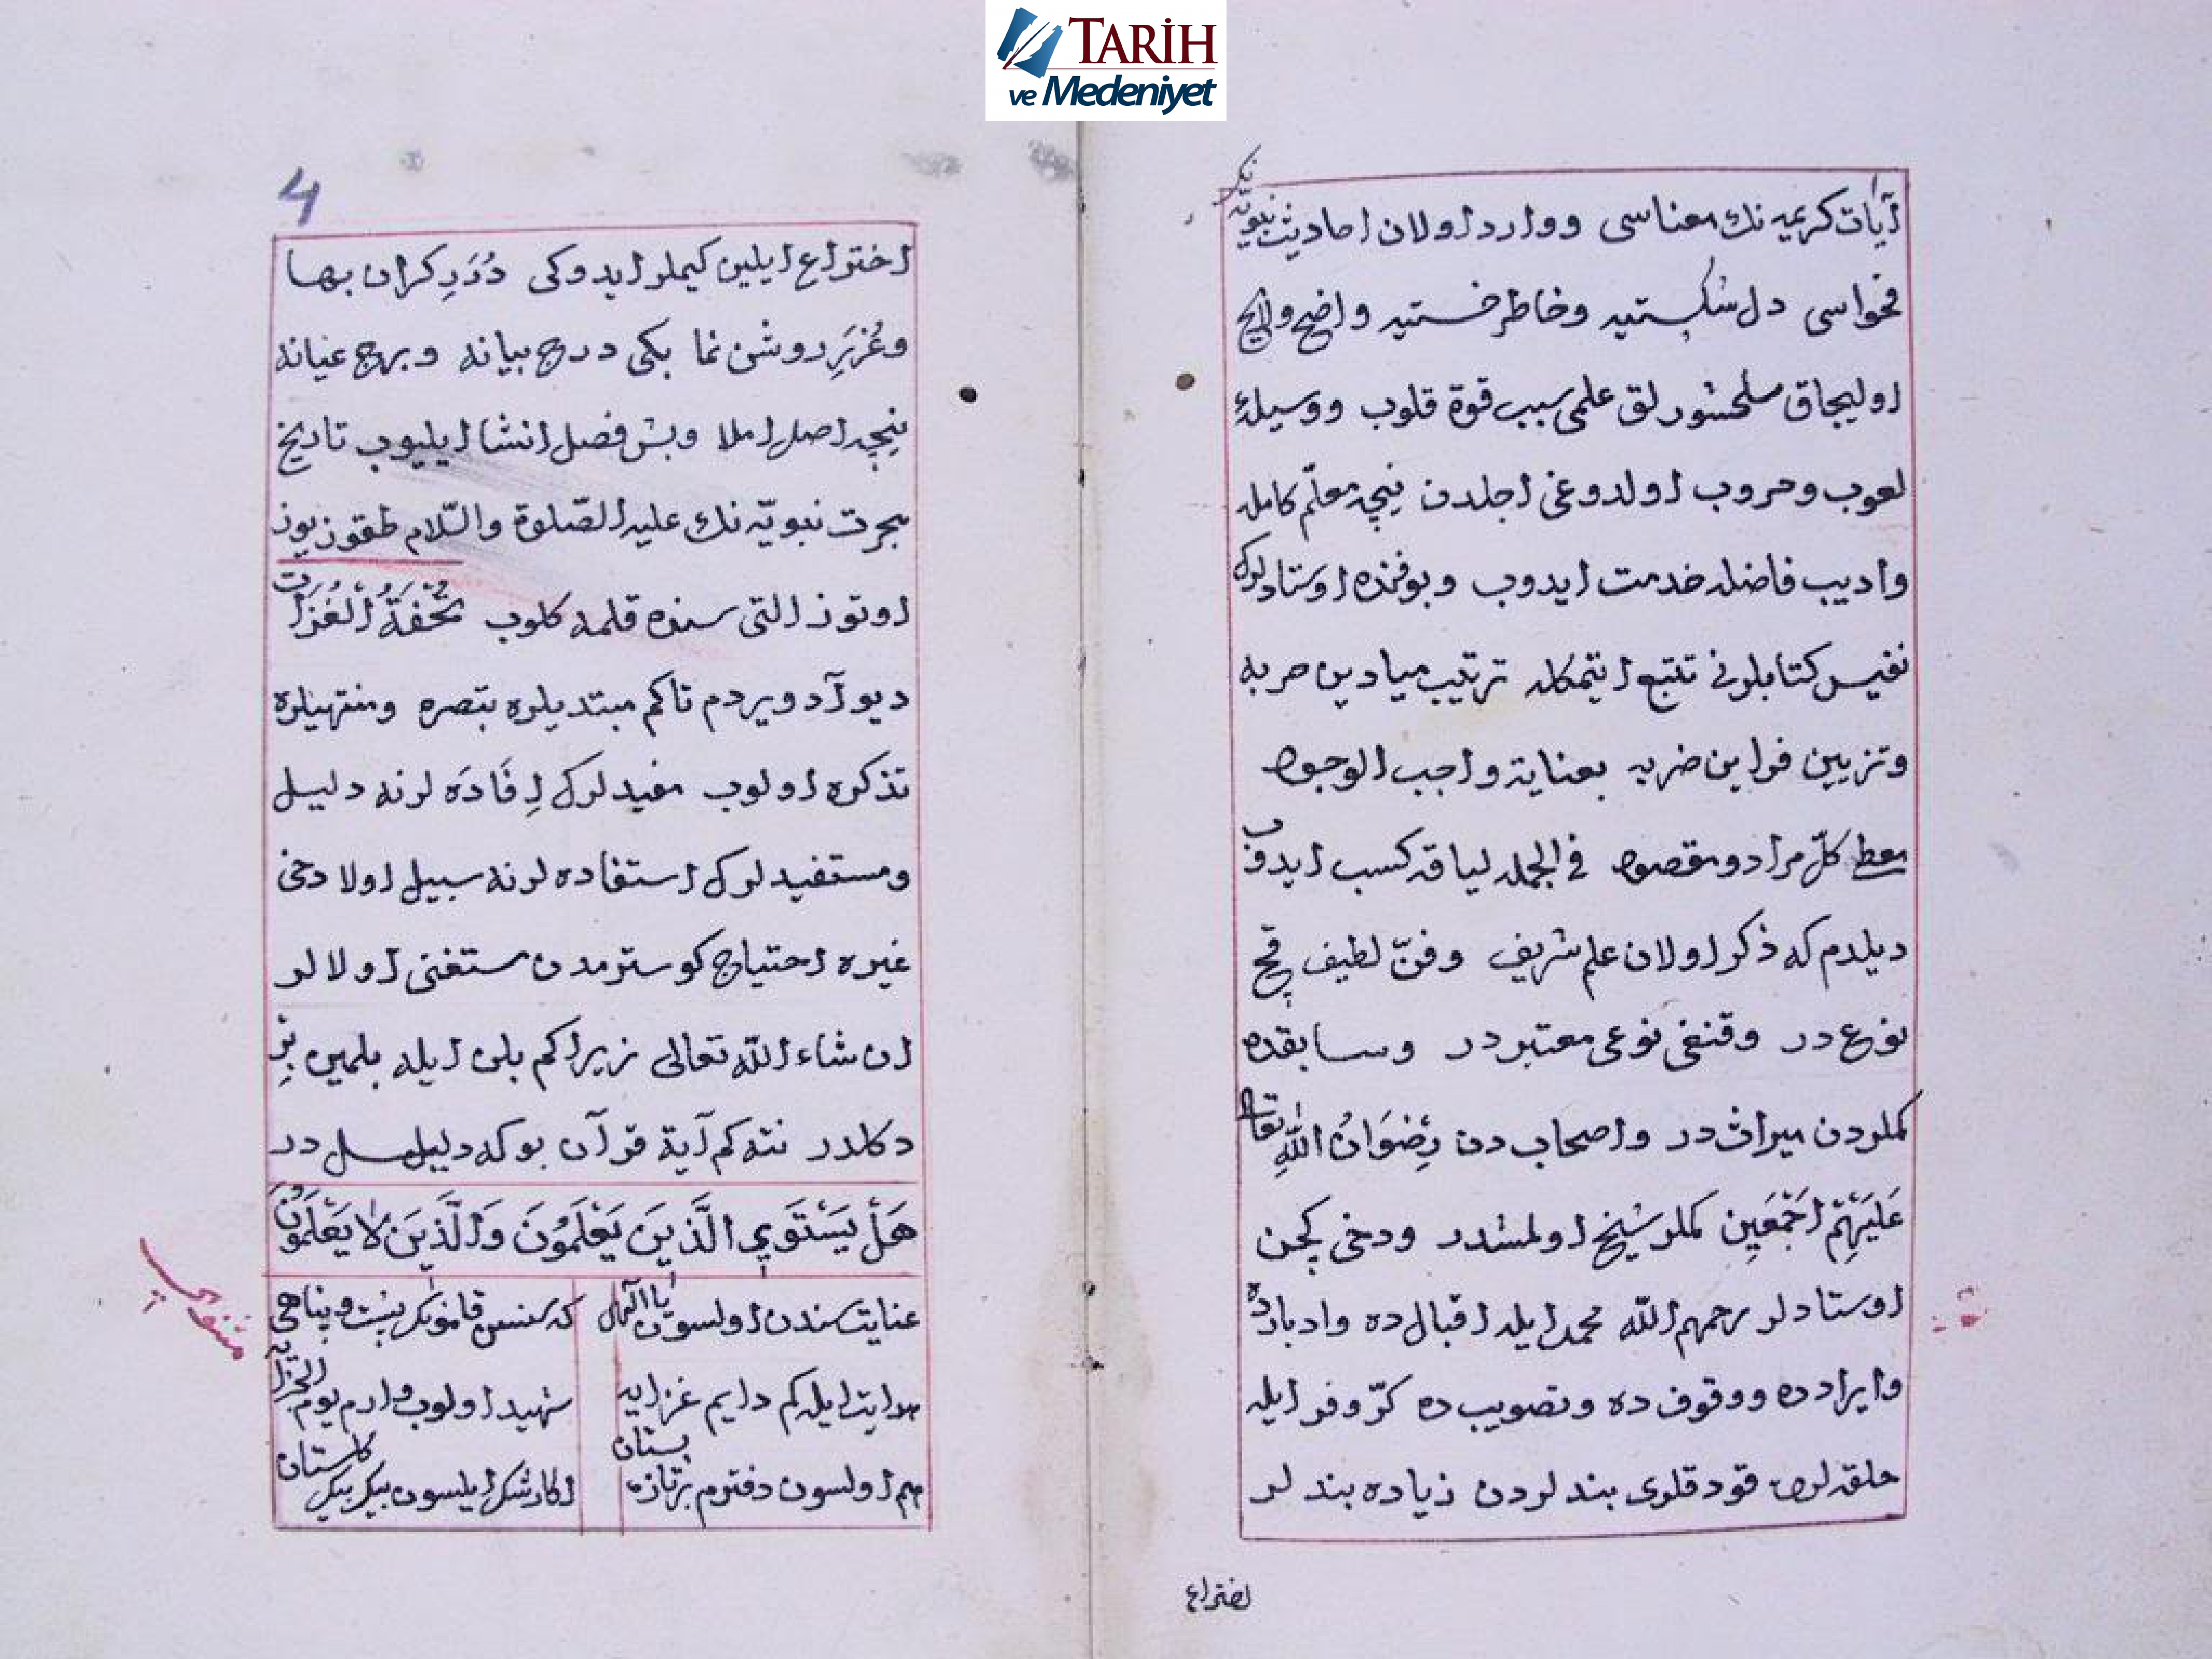 TARİH
ve Medeniyet
آیات کریمه نك معناسی و وارد اولان احادیث نبویه نك
فحواسی دل شکسته‌یه و خاطر خسته‌یه واضح و لایح
اولیجاق سلحشورلق علمی سبب قوة قلوب و وسیلهٔ
لعوب و حروب اولدوغی اجلدن نیچه معلّم کامله
وادیب فاضله خدمت ایدوب و بو فنده اوستادلرك
نفیس کتابلرنی تتبع ایتمکله ترتیب میادین حربه
و تزیین قوانین ضربه بعنایة واجب الوجود
معطی کلّ مراد و مقصود فی الجمله لیاقة کسب ایدوب
دیلدم که ذکر اولان علم شریف و فنّ لطیف قچ
نوع در و قنغی نوعی معتبر در و سابقده
کملردن میراث در و اصحاب دن رِضْوَانُ اللّٰهِ تعالی
عَلَيْهِمْ اَجْمَعِين کملر شیخ اولمشدر و دخی کچن
اوستادلر رحمهم الله محمد ایله اقبال ده و ادبارده
و ایرادده و وقوف ده و تصویب ده کرّ و فر ایله
حلقه لری قودقلری بندلردن زیاده بند لر
اختراع
4
اختراع ایلین کیملر ایدوکی دُرَرِ کران بها
و غُرَرِ روشن نما بکی درج بیانه و برج عیانه
نیچه اصل املا و بش فصل انشا ایلیوب تاریخ
هجرت نبویّه نك علیه الصّلوة والسّلام طقوز یوز
اوتوز التی سنده قلمه کلوب تُحْفَةُ الْغُزَات
دیو آد ویردم تاکم مبتدیلره تبصره و منتهیلره
تذکره اولوب مفیدلرك اِفَادَه لرنه دلیل
و مستفیدلرك استفاده لرنه سبیل اولا دخی
غیره احتیاج کوسترمدن مستغنی اولالر
ان شاء الله تعالی زیرا کم بلن ایله بلمین بِر
دکلدر نته کم آیة قرآن بوکه دلیل در
هَلْ يَسْتَوِي الَّذِينَ يَعْلَمُونَ وَالَّذِينَ لَا يَعْلَمُونَ
عنایت سندن اولسون یا الهی که سنسن قامونك پشت و پناهی
هدایت ایله کم دایم غزایه شهید اولوب وارم یوم الجزایه
هم اولسون دفترم بر تازه بستان اکا رشك ایلسون بیك بیك کلستان
مثنوی